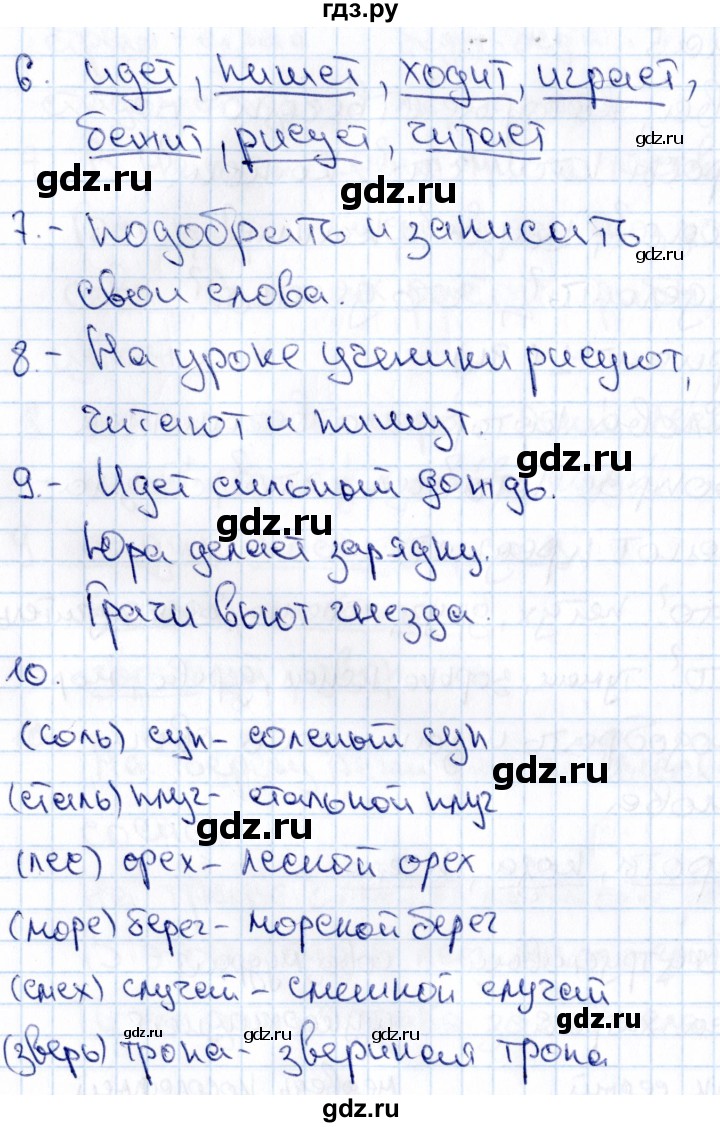 гдз.ру
6. идет, пишет, ходит, играет,
gdz.ru
бежит, рисует, читает
gdz.ru
gdz.ru
7.- Подобрать и записать
gdz.ru
свои слова.
8.- На уроке ученики рисуют,
gdz.ru
читают и пишут.
gdz.ru
9.- Идет сильный дождь.
gdz.ru
Юра делает зарядку.
Грачи вьют гнезда.
10.
(соль) суп - соленый суп
gdz.ru
(сталь) плуг - стальной плуг
gdz.ru
(лес) орех - лесной орех
(море) берег - морской берег
(смех) случай - смешной случай
gdz.ru
gdz.ru gdz.ru gdz.ru
(зверь) тропа - звериная тропа
gdz.ru